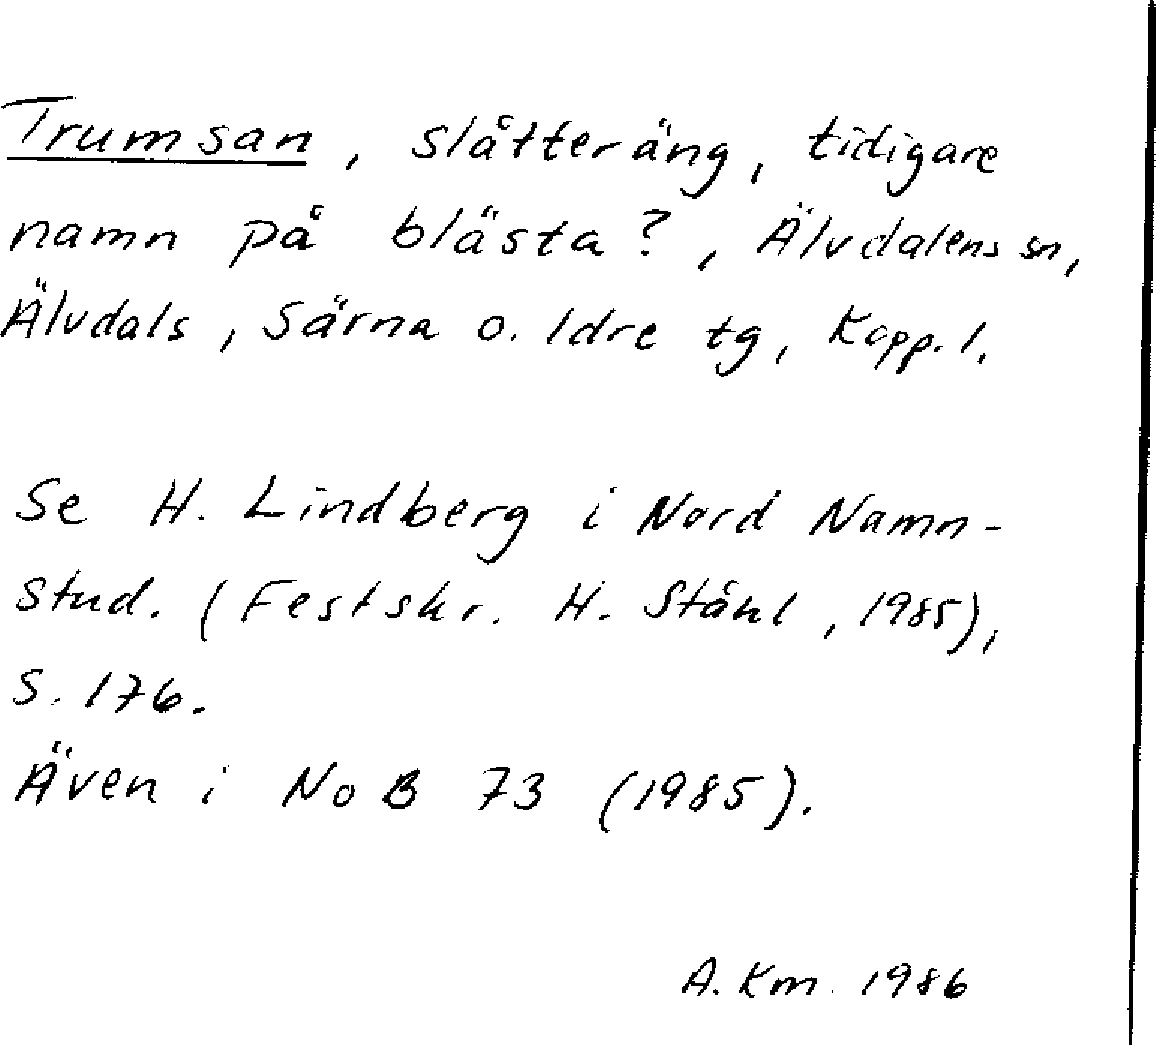 Trumsan, slåtteräng, tidigare
namn på blästa?, Älvdalens sn,
Älvdals, Särna o. Idre tg, Kopp. l.
Se H. Lindberg i Nord Namn-
stud. (Festskr. H. Ståhl, 1985),
s. 176.
Även i NoB 73 (1985).
A. Km. 1986